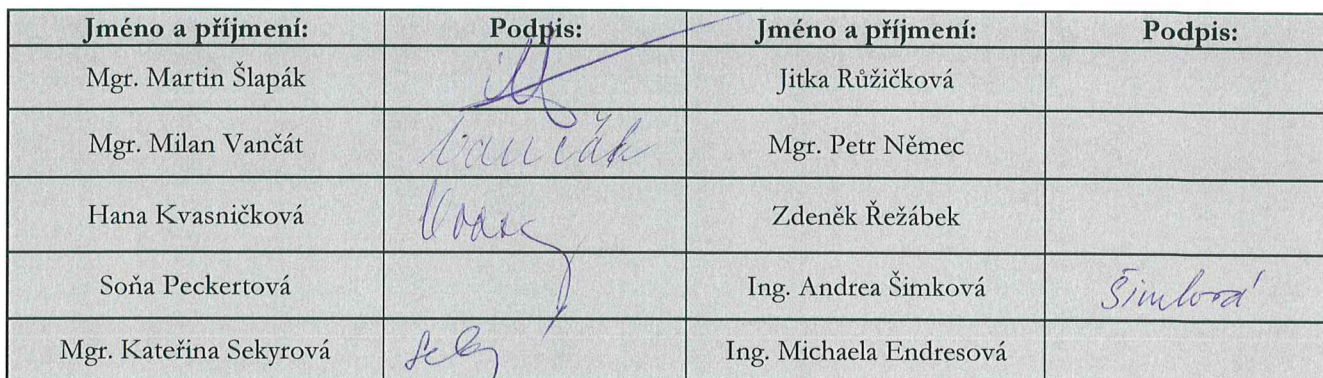 Jméno a příjmení: Podpis: Jméno a příjmení: Podpis:
Mgr. Martin Šlapák Jitka Růžičková
Mgr. Milan Vančát Vančák Mgr. Petr Němec
Hana Kvasničková Zdeněk Řežábek
Soňa Peckertová Ing. Andrea Šimková Šimková
Mgr. Kateřina Sekyrová Ing. Michaela Endresová